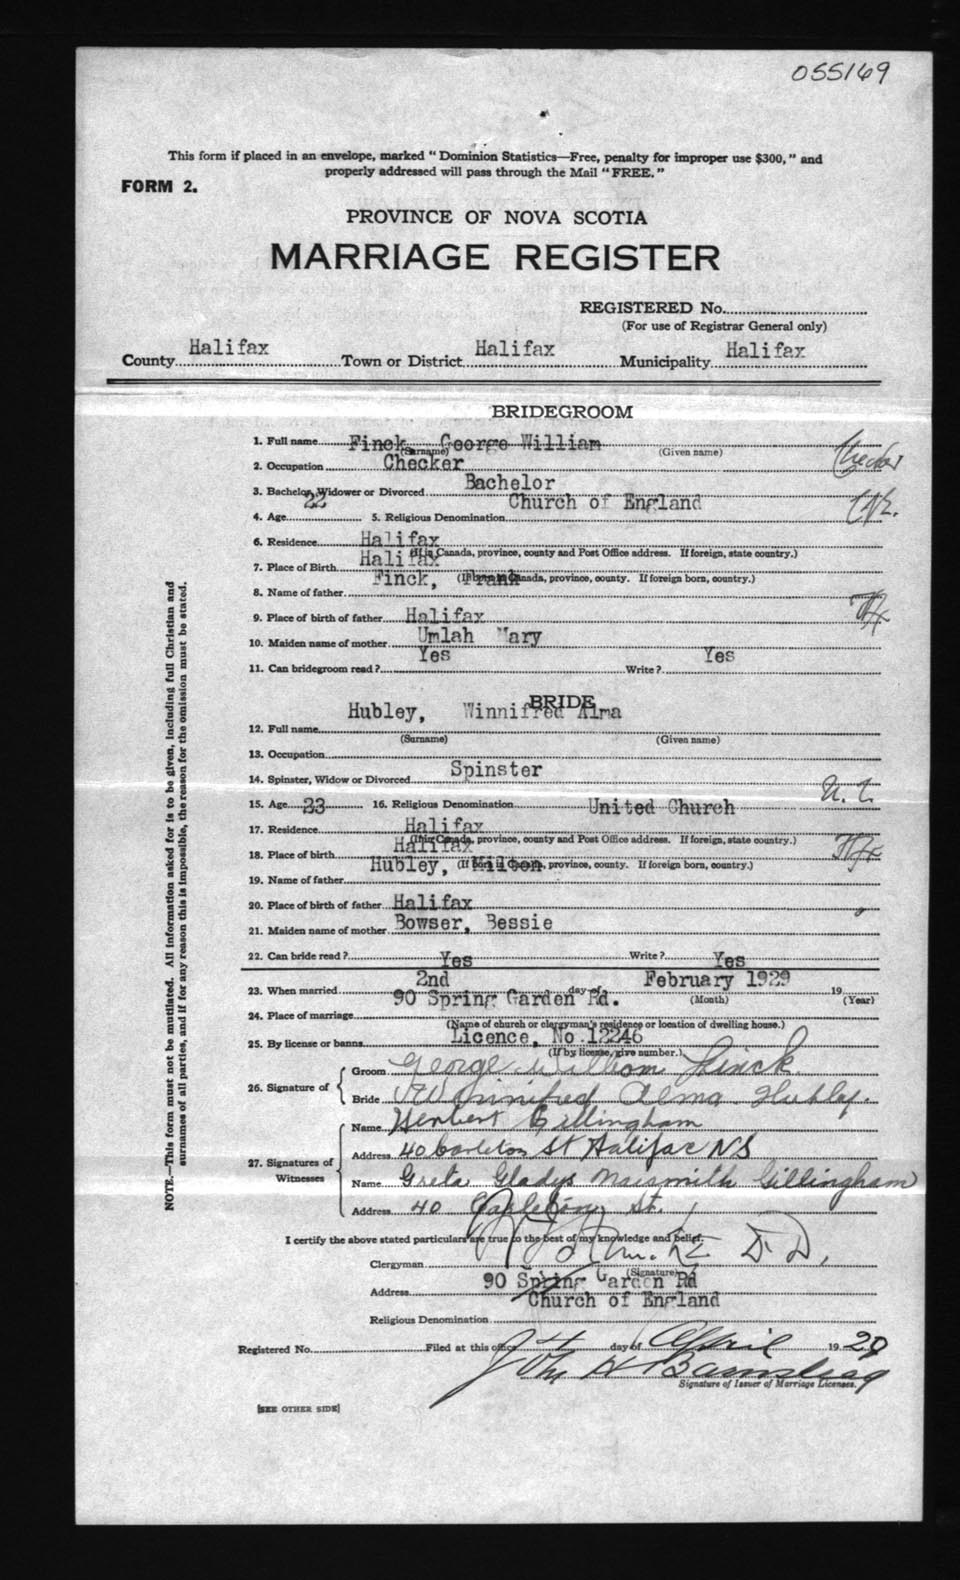 055169
This form if placed in an envelope, marked "Dominion Statistics—Free, penalty for improper use $300," and
properly addressed will pass through the Mail "FREE."
FORM 2.
PROVINCE OF NOVA SCOTIA
MARRIAGE REGISTER
REGISTERED No.
(For use of Registrar General only)
County Halifax Town or District Halifax Municipality Halifax
BRIDEGROOM
1. Full name Finck George William
(Surname) (Given name)
2. Occupation Checker Checker
3. Bachelor, Widower or Divorced Bachelor
4. Age 22 5. Religious Denomination Church of England C/E.
6. Residence Halifax
(If in Canada, province, county and Post Office address. If foreign, state country.)
7. Place of Birth Halifax
(If born in Canada, province, county. If foreign born, country.)
8. Name of father Finck, Frank
9. Place of birth of father Halifax Hfx
10. Maiden name of mother Umlah Mary
11. Can bridegroom read? Yes Write? Yes
BRIDE
12. Full name Hubley, Winnifred Alma
(Surname) (Given name)
13. Occupation
14. Spinster, Widow or Divorced Spinster
15. Age 23 16. Religious Denomination United Church U. C.
17. Residence Halifax
(If in Canada, province, county and Post Office address. If foreign, state country.)
18. Place of birth Halifax Hfx
(If born in Canada, province, county. If foreign born, country.)
19. Name of father Hubley, Milton
20. Place of birth of father Halifax
21. Maiden name of mother Bowser, Bessie
22. Can bride read? Yes Write? Yes
23. When married 2nd day of February 1929 19
(Month) (Year)
24. Place of marriage 90 Spring Garden Rd.
(Name of church or clergyman's residence or location of dwelling house.)
25. By license or banns Licence, No. 12246
(If by license, give number.)
26. Signature of
Groom George William Finck
Bride Winnifred Alma Hubley.
27. Signatures of Witnesses
Name Herbert Gillingham
Address 40 Carleton St Halifax NS
Name Greta Gladys Naismith Gillingham
Address 40 Carleton St.
I certify the above stated particulars are true to the best of my knowledge and belief.
Clergyman D. D.
(Signature)
Address 90 Spring Garden Rd
Religious Denomination Church of England
Registered No. Filed at this office 4 day of April 1929
John H Barnstead
Signature of Issuer of Marriage Licenses.
[SEE OTHER SIDE]
NOTE.—This form must not be mutilated. All information asked for is to be given, including full Christian and
surnames of all parties, and if for any reason this is impossible, the reason for the omission must be stated.